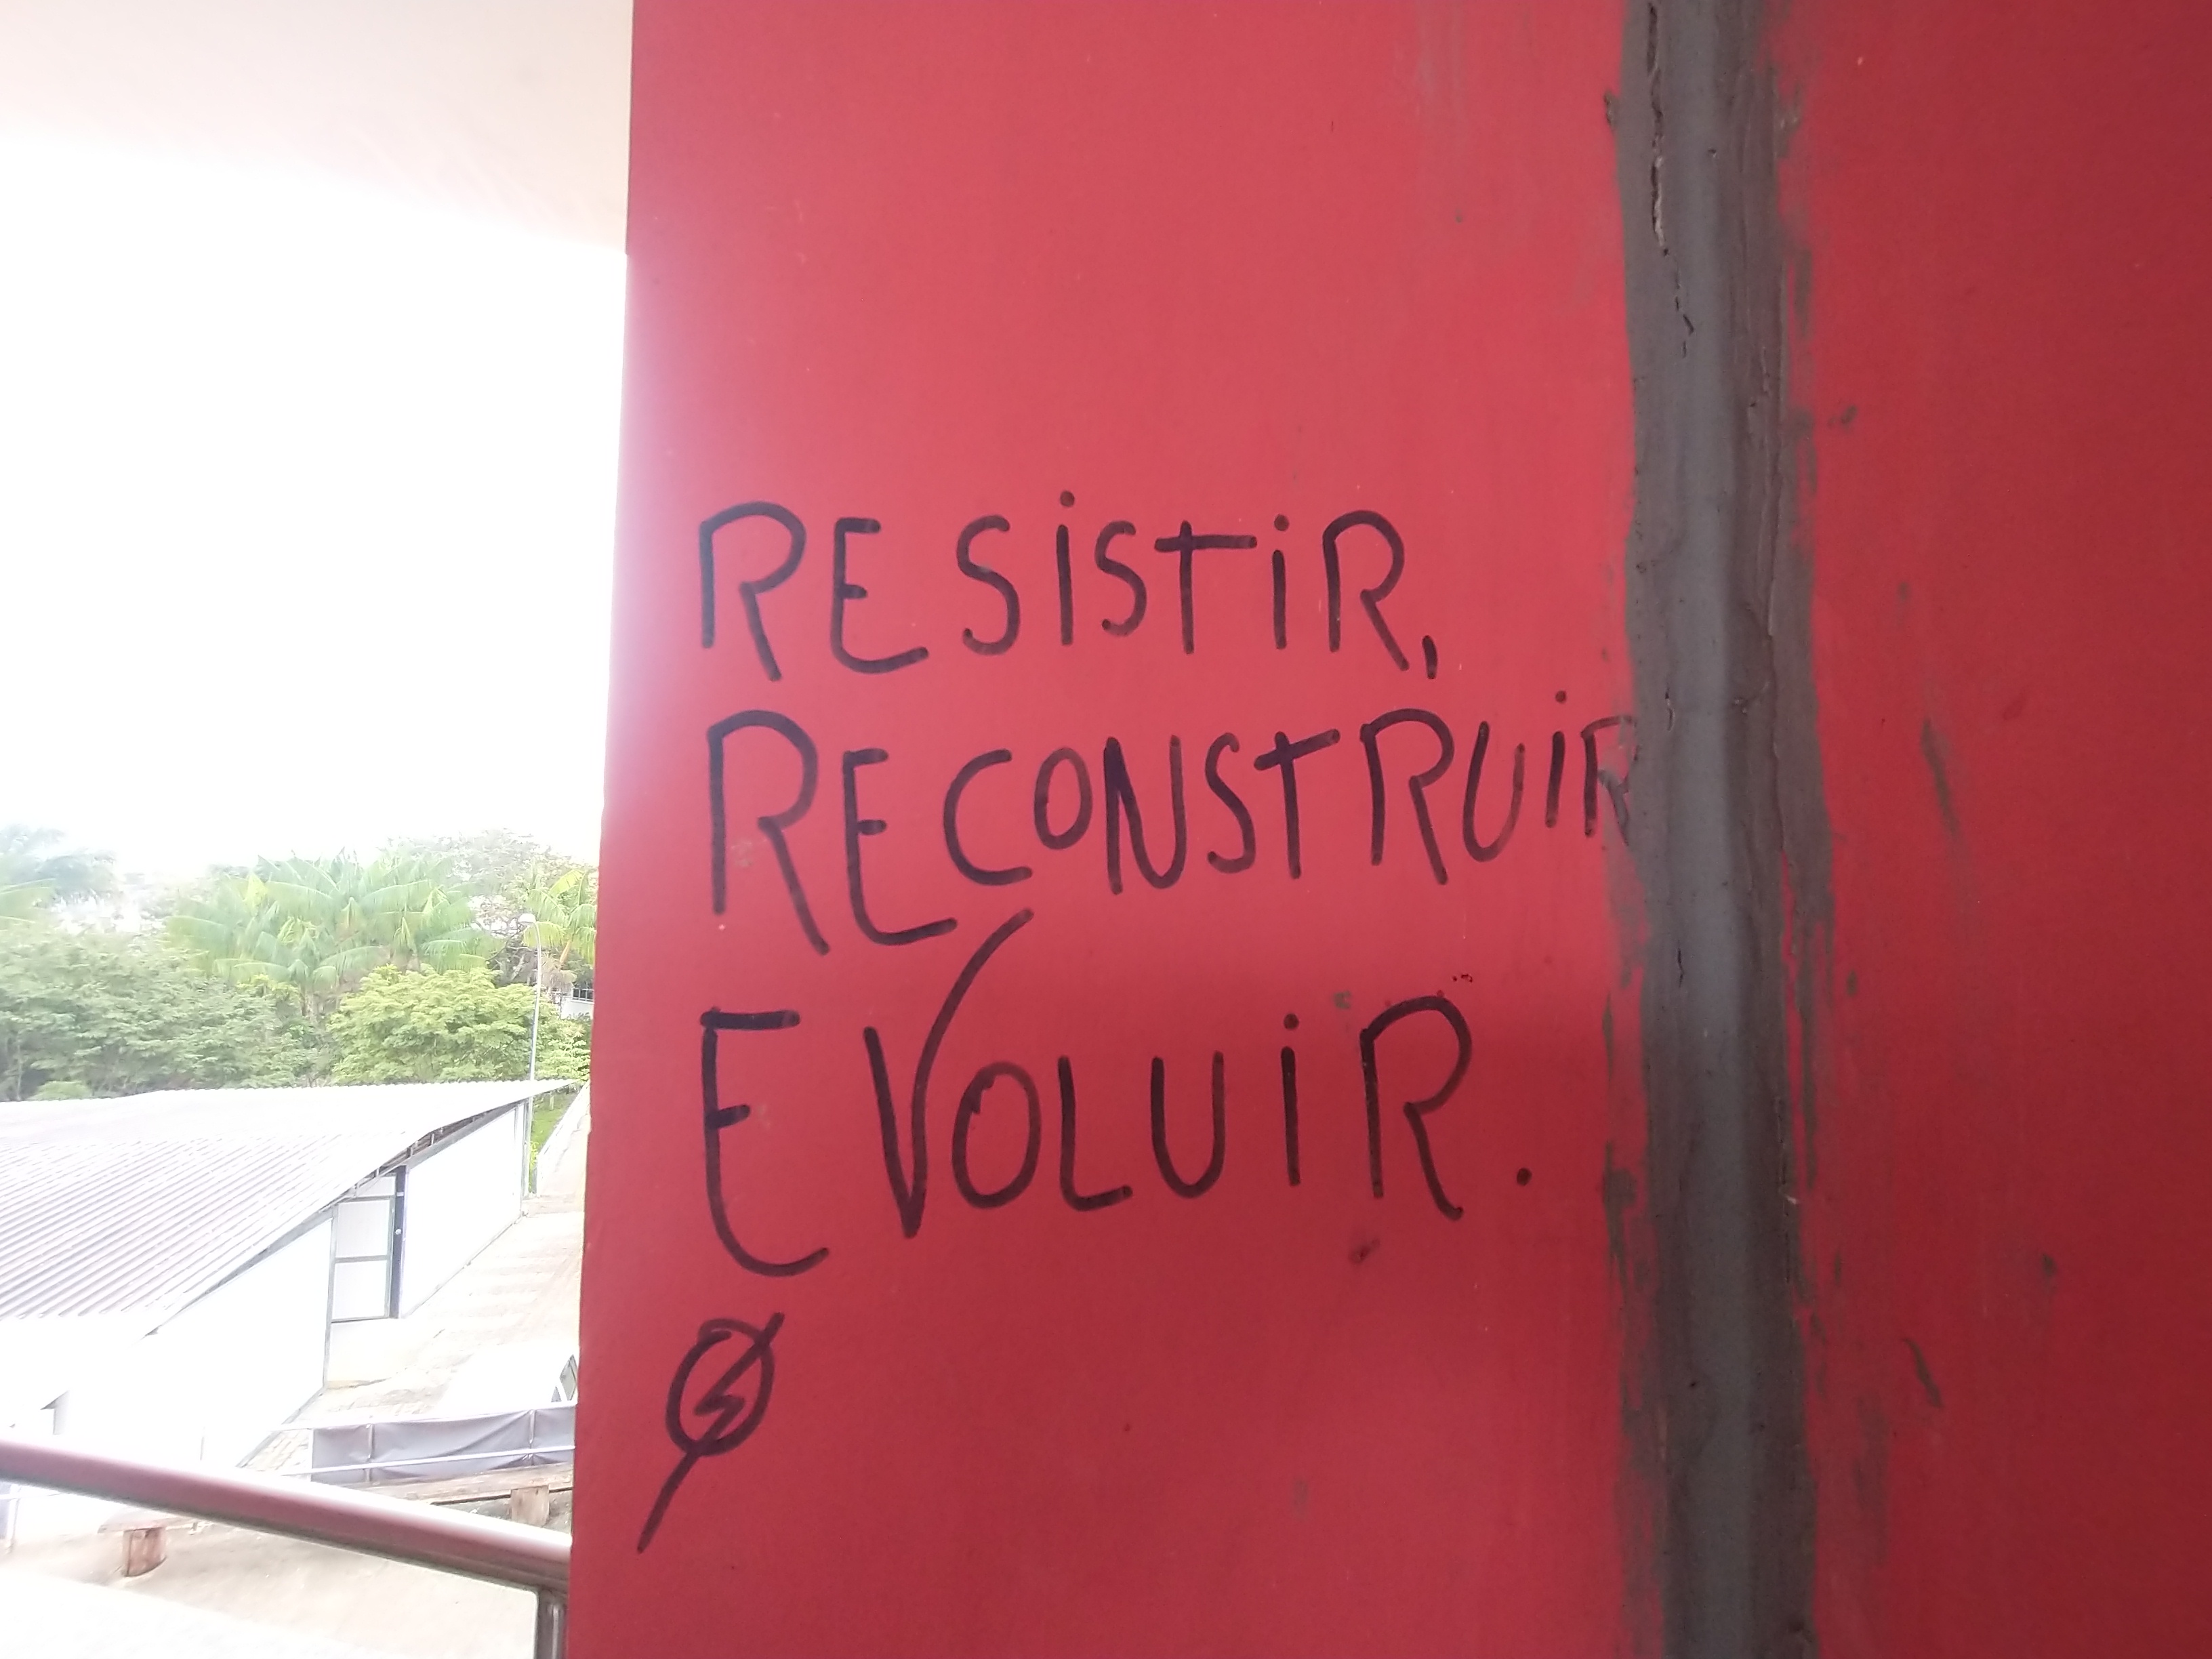 RESiSTiR,
RECONSTRUiR
EVOLUiR.